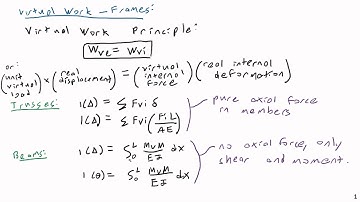 Virtual Work - Frames:
Virtual Work Principle:
Wve = Wvi
or:
(unit virtual load) × (real displacement) = (virtual internal force) (real internal deformation)
Trusses: 1(Δ) = Σ Fvi δ
1(Δ) = Σ Fvi (FiL/AE)
pure axial force in members
Beams: 1(Δ) = ∫₀ᴸ MvM/EI dx
1(θ) = ∫₀ᴸ MvM/EI dx
no axial force, only shear and moment.
1